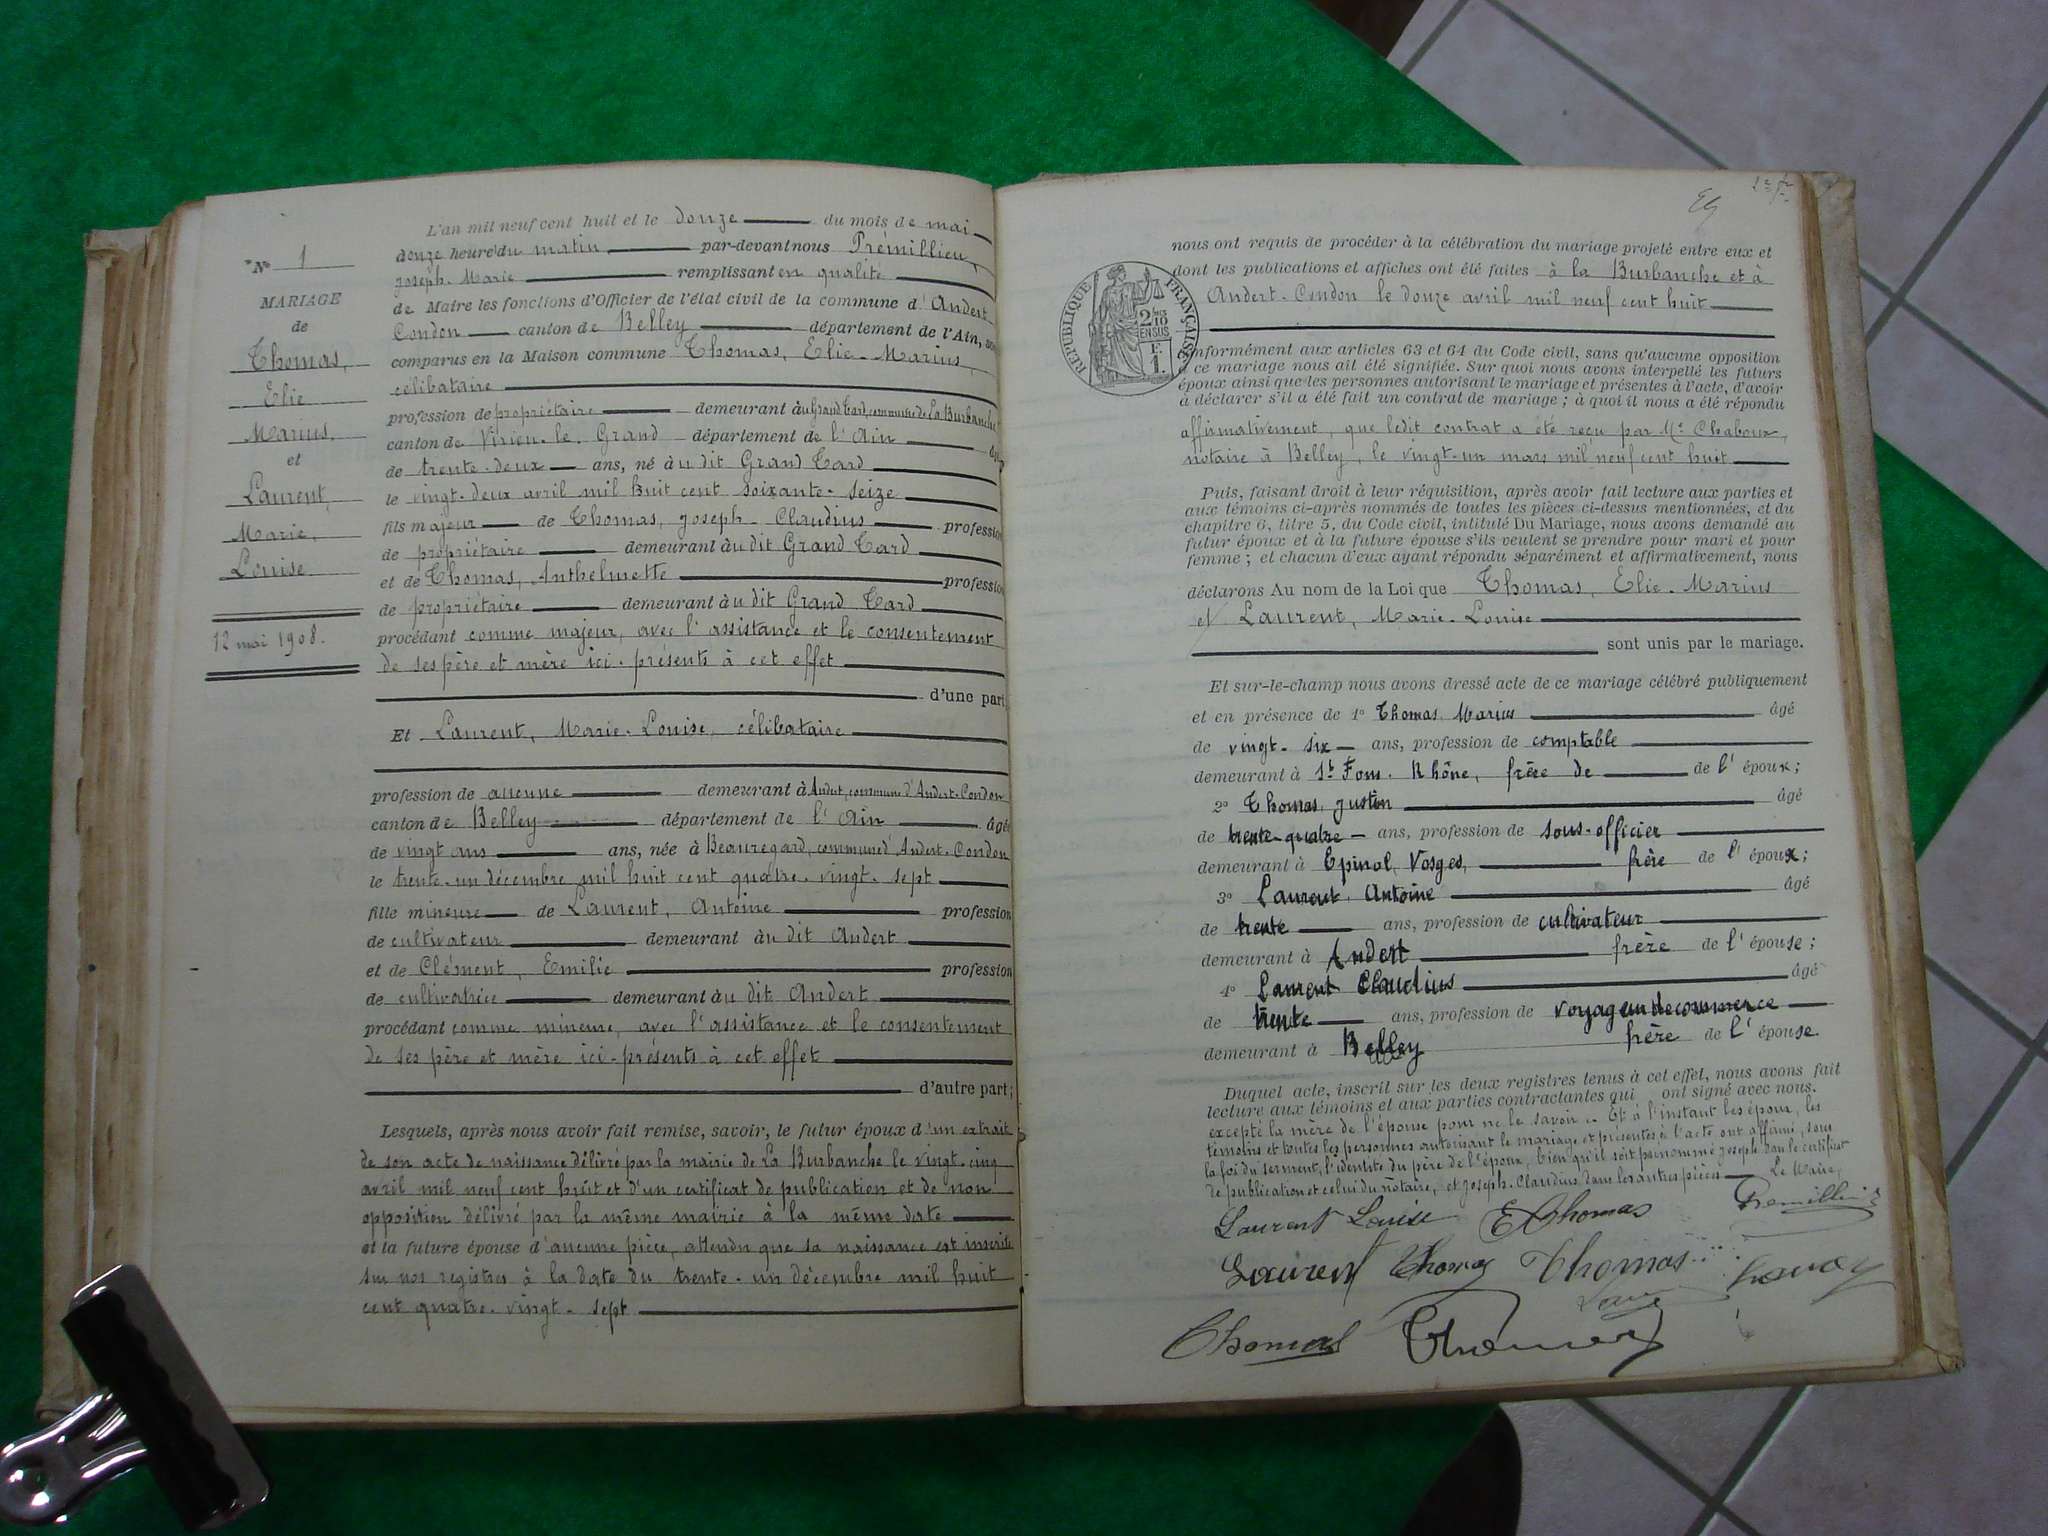 N° 1
MARIAGE
de
Thomas,
Elie
Marius,
et
Laurent,
Marie,
Louise
12 mai 1908.
L'an mil neuf cent huit et le douze du mois de mai
douze heure du matin par-devant nous Prémillieu,
Joseph Marie remplissant en qualité
de Maire les fonctions d'Officier de l'état civil de la commune d'Andert
Condon canton de Belley département de l'Ain,
comparus en la Maison commune Thomas, Elie-Marius,
célibataire
profession de propriétaire demeurant à u Grand Tard, commune de La Burbanche
canton de Virieu-le-Grand département de l'Ain
de trente-deux ans, né à u dit Grand Tard
le vingt-deux avril mil huit cent soixante-seize
fils majeur de Thomas, Joseph-Claudius profession
de propriétaire demeurant à u dit Grand Tard
et de Thomas, Anthelmette profession
de propriétaire demeurant à u dit Grand Tard
procédant comme majeur, avec l'assistance et le consentement
de ses père et mère ici-présents à cet effet
d'une part,
Et Laurent, Marie-Louise, célibataire
profession de aucune demeurant à Andert, commune d'Andert-Condon
canton de Belley département de l'Ain âgé
de vingt ans ans, née à Beauregard, commune d'Andert-Condon
le trente-un décembre mil huit cent quatre-vingt-sept
fille mineure de Laurent, Antoine profession
de cultivateur demeurant à u dit Andert
et de Clément, Emilie profession
de cultivatrice demeurant à u dit Andert
procédant comme mineure, avec l'assistance et le consentement
de ses père et mère ici-présents à cet effet
d'autre part;
Lesquels, après nous avoir fait remise, savoir, le futur époux d'un extrait
de son acte de naissance délivré par la mairie de La Burbanche le vingt-cinq
avril mil neuf cent huit et d'un certificat de publication et de non
opposition délivré par la même mairie à la même date
et la future épouse d'aucune pièce, attendu que sa naissance est inscrite
sur nos registres à la date du trente-un décembre mil huit
cent quatre-vingt-sept
RÉPUBLIQUE FRANÇAISE
2/10
EN SUS
F.
1.
nous ont requis de procéder à la célébration du mariage projeté entre eux et
dont les publications et affiches ont été faites à la Burbanche et à
Andert-Condon le douze avril mil neuf cent huit
conformément aux articles 63 et 64 du Code civil, sans qu'aucune opposition
à ce mariage nous ait été signifiée. Sur quoi nous avons interpellé les futurs
époux ainsi que les personnes autorisant le mariage et présentes à l'acte, d'avoir
à déclarer s'il a été fait un contrat de mariage ; à quoi il nous a été répondu
affirmativement, que ledit contrat a été reçu par Me Chaboux,
notaire à Belley, le vingt-un mars mil neuf cent huit
Puis, faisant droit à leur réquisition, après avoir fait lecture aux parties et
aux témoins ci-après nommés de toutes les pièces ci-dessus mentionnées, et du
chapitre 6, titre 5, du Code civil, intitulé Du Mariage, nous avons demandé au
futur époux et à la future épouse s'ils veulent se prendre pour mari et pour
femme ; et chacun d'eux ayant répondu séparément et affirmativement, nous
déclarons Au nom de la Loi que Thomas, Elie-Marius
et Laurent, Marie-Louise
sont unis par le mariage.
Et sur-le-champ nous avons dressé acte de ce mariage célébré publiquement
et en présence de 1° Thomas, Marius âgé
de vingt-six ans, profession de comptable
demeurant à St Fons, Rhône, frère de de l'époux;
2° Thomas, Justin âgé
de trente-quatre ans, profession de sous-officier
demeurant à Epinal, Vosges, frère de l'époux;
3° Laurent, Antoine âgé
de trente ans, profession de cultivateur
demeurant à Andert frère de l'épouse;
4° Laurent Claudius âgé
de trente ans, profession de voyageur de commerce
demeurant à Belley frère de l'épouse.
Duquel acte, inscrit sur les deux registres tenus à cet effet, nous avons fait
lecture aux témoins et aux parties contractantes qui ont signé avec nous.
excepté la mère de l'épouse pour ne le savoir. Et à l'instant les époux, les
témoins et toutes les personnes autorisant le mariage et présentes à l'acte ont affirmé, sous
la foi du serment, l'identité du père de l'époux, bien qu'il soit prénommé Joseph dans le certificat
de publication et celui du notaire, et Joseph-Claudius dans les autres pièces Le Maire,
Laurent Louise E Thomas Prémillieu
Laurent Thomas Thomas
Thomas Thomas